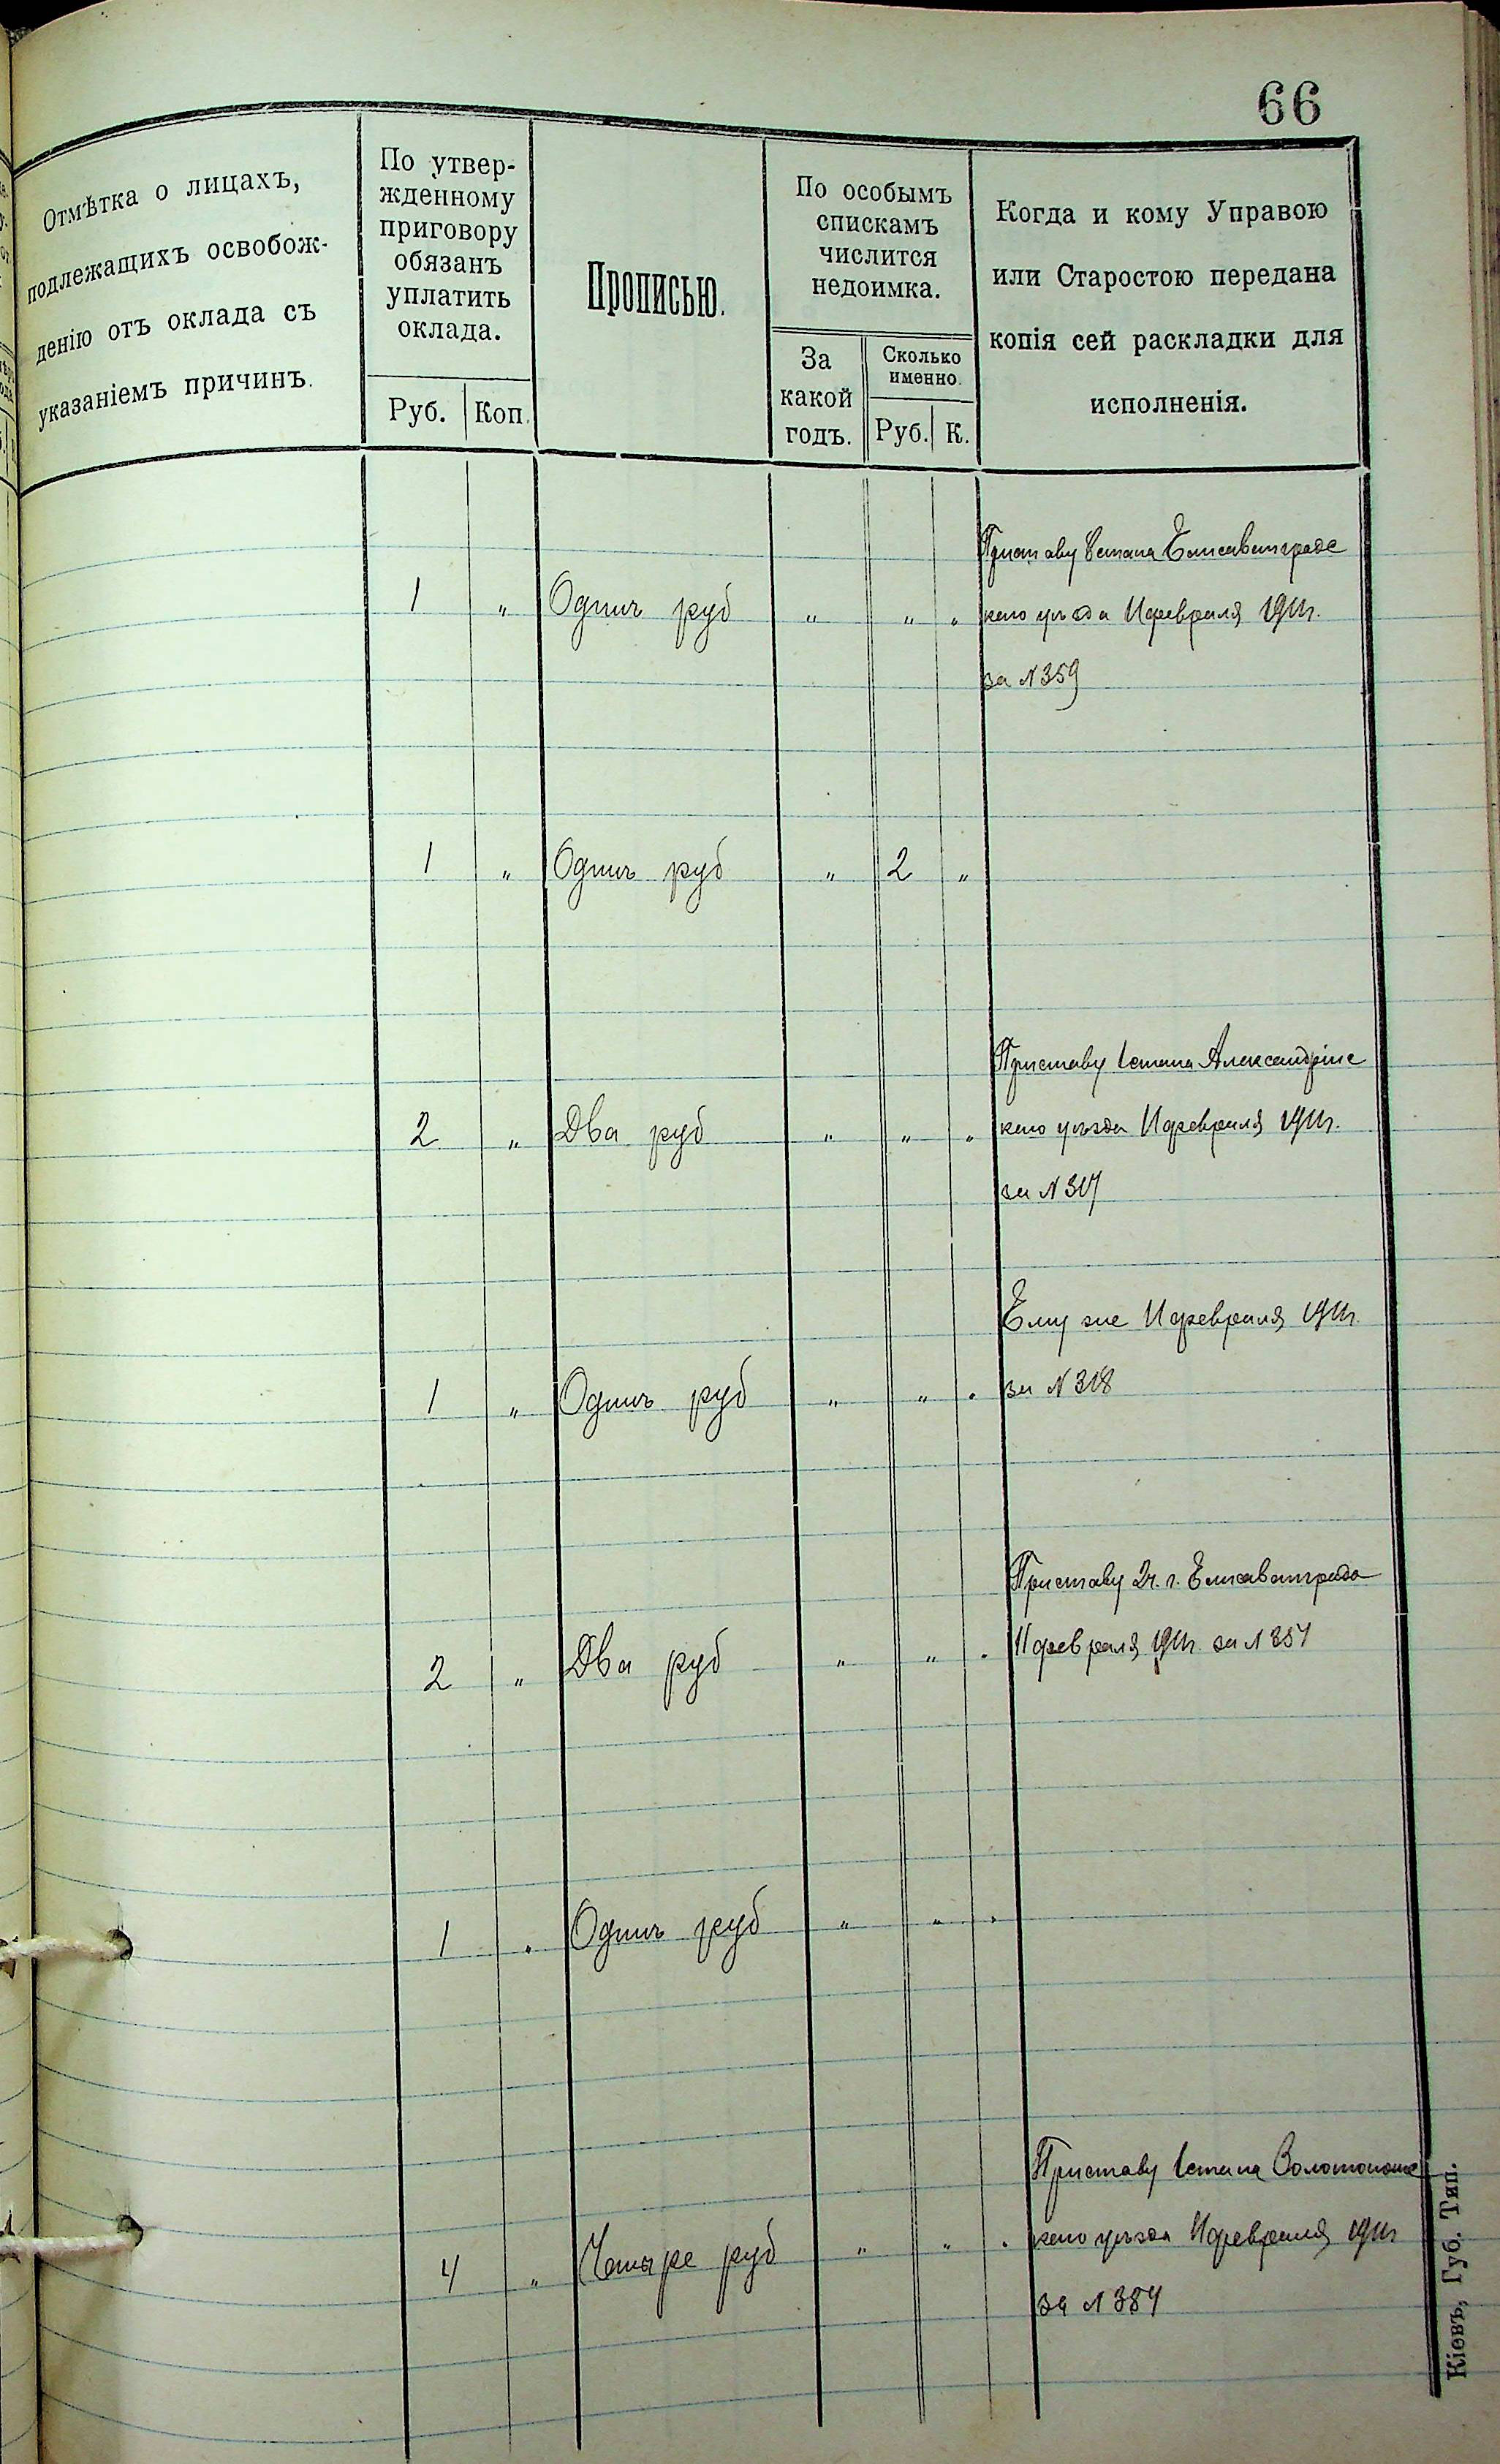 66
Отмѣтка о лицахъ,
подлежащихъ освобож-
денію отъ оклада съ
указаніемъ причинъ.
По утвер-
жденному
приговору
обязанъ
уплатить
оклада.
Руб. Коп.
Прописью.
По особымъ
спискамъ
числится
недоимка.
За
какой
годъ.
Сколько
именно.
Руб. К.
Когда и кому Управою
или Старостою передана
копія сей раскладки для
исполненія.
Приставу стана Елисаветградс
1 „ Одинъ руб „ „ „ каго уѣзда 11 февраля 1911г.
за N 359
1 „ Одинъ руб „ 2 „
Приставу 1 стана Александрійс
2 „ Два руб „ „ „ каго уѣзда 11 февраля 1911г.
за N 317
Ему же 11 февраля 1911г.
1 „ Одинъ руб „ „ „ за N 318
Приставу 2 ч. г. Елисаветграда
2 „ Два руб „ „ „ 11 февраля 1911г. за N
1 „ Одинъ руб „ „ „
Приставу 1 стана Золотоношс
4 „ Четыре руб „ „ „ каго уѣзда 11 февраля 1911г
за N 384
Кіевъ, Губ. Тип.